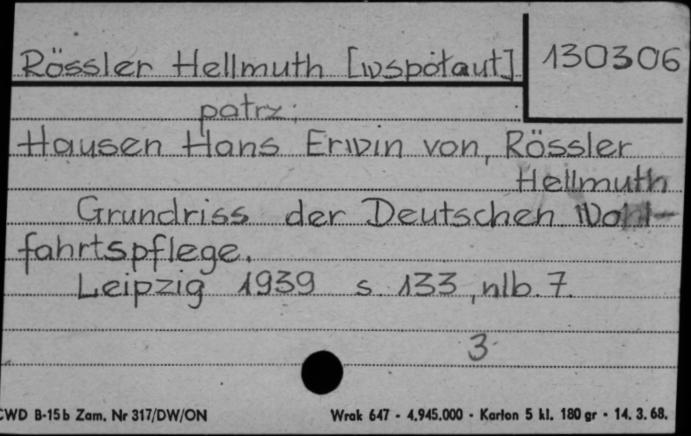 Rössler Hellmuth [współaut] 130306
patrz:
Hausen Hans Erwin von, Rössler
Hellmuth
Grundriss der Deutschen Wohl-
fahrtspflege.
Leipzig 1939 s. 133, nlb. 7.
3
CWD B-15b Zam. Nr 317/DW/ON Wrak 647 - 4.945.000 - Karton 5 kl. 180 gr - 14. 3. 68.